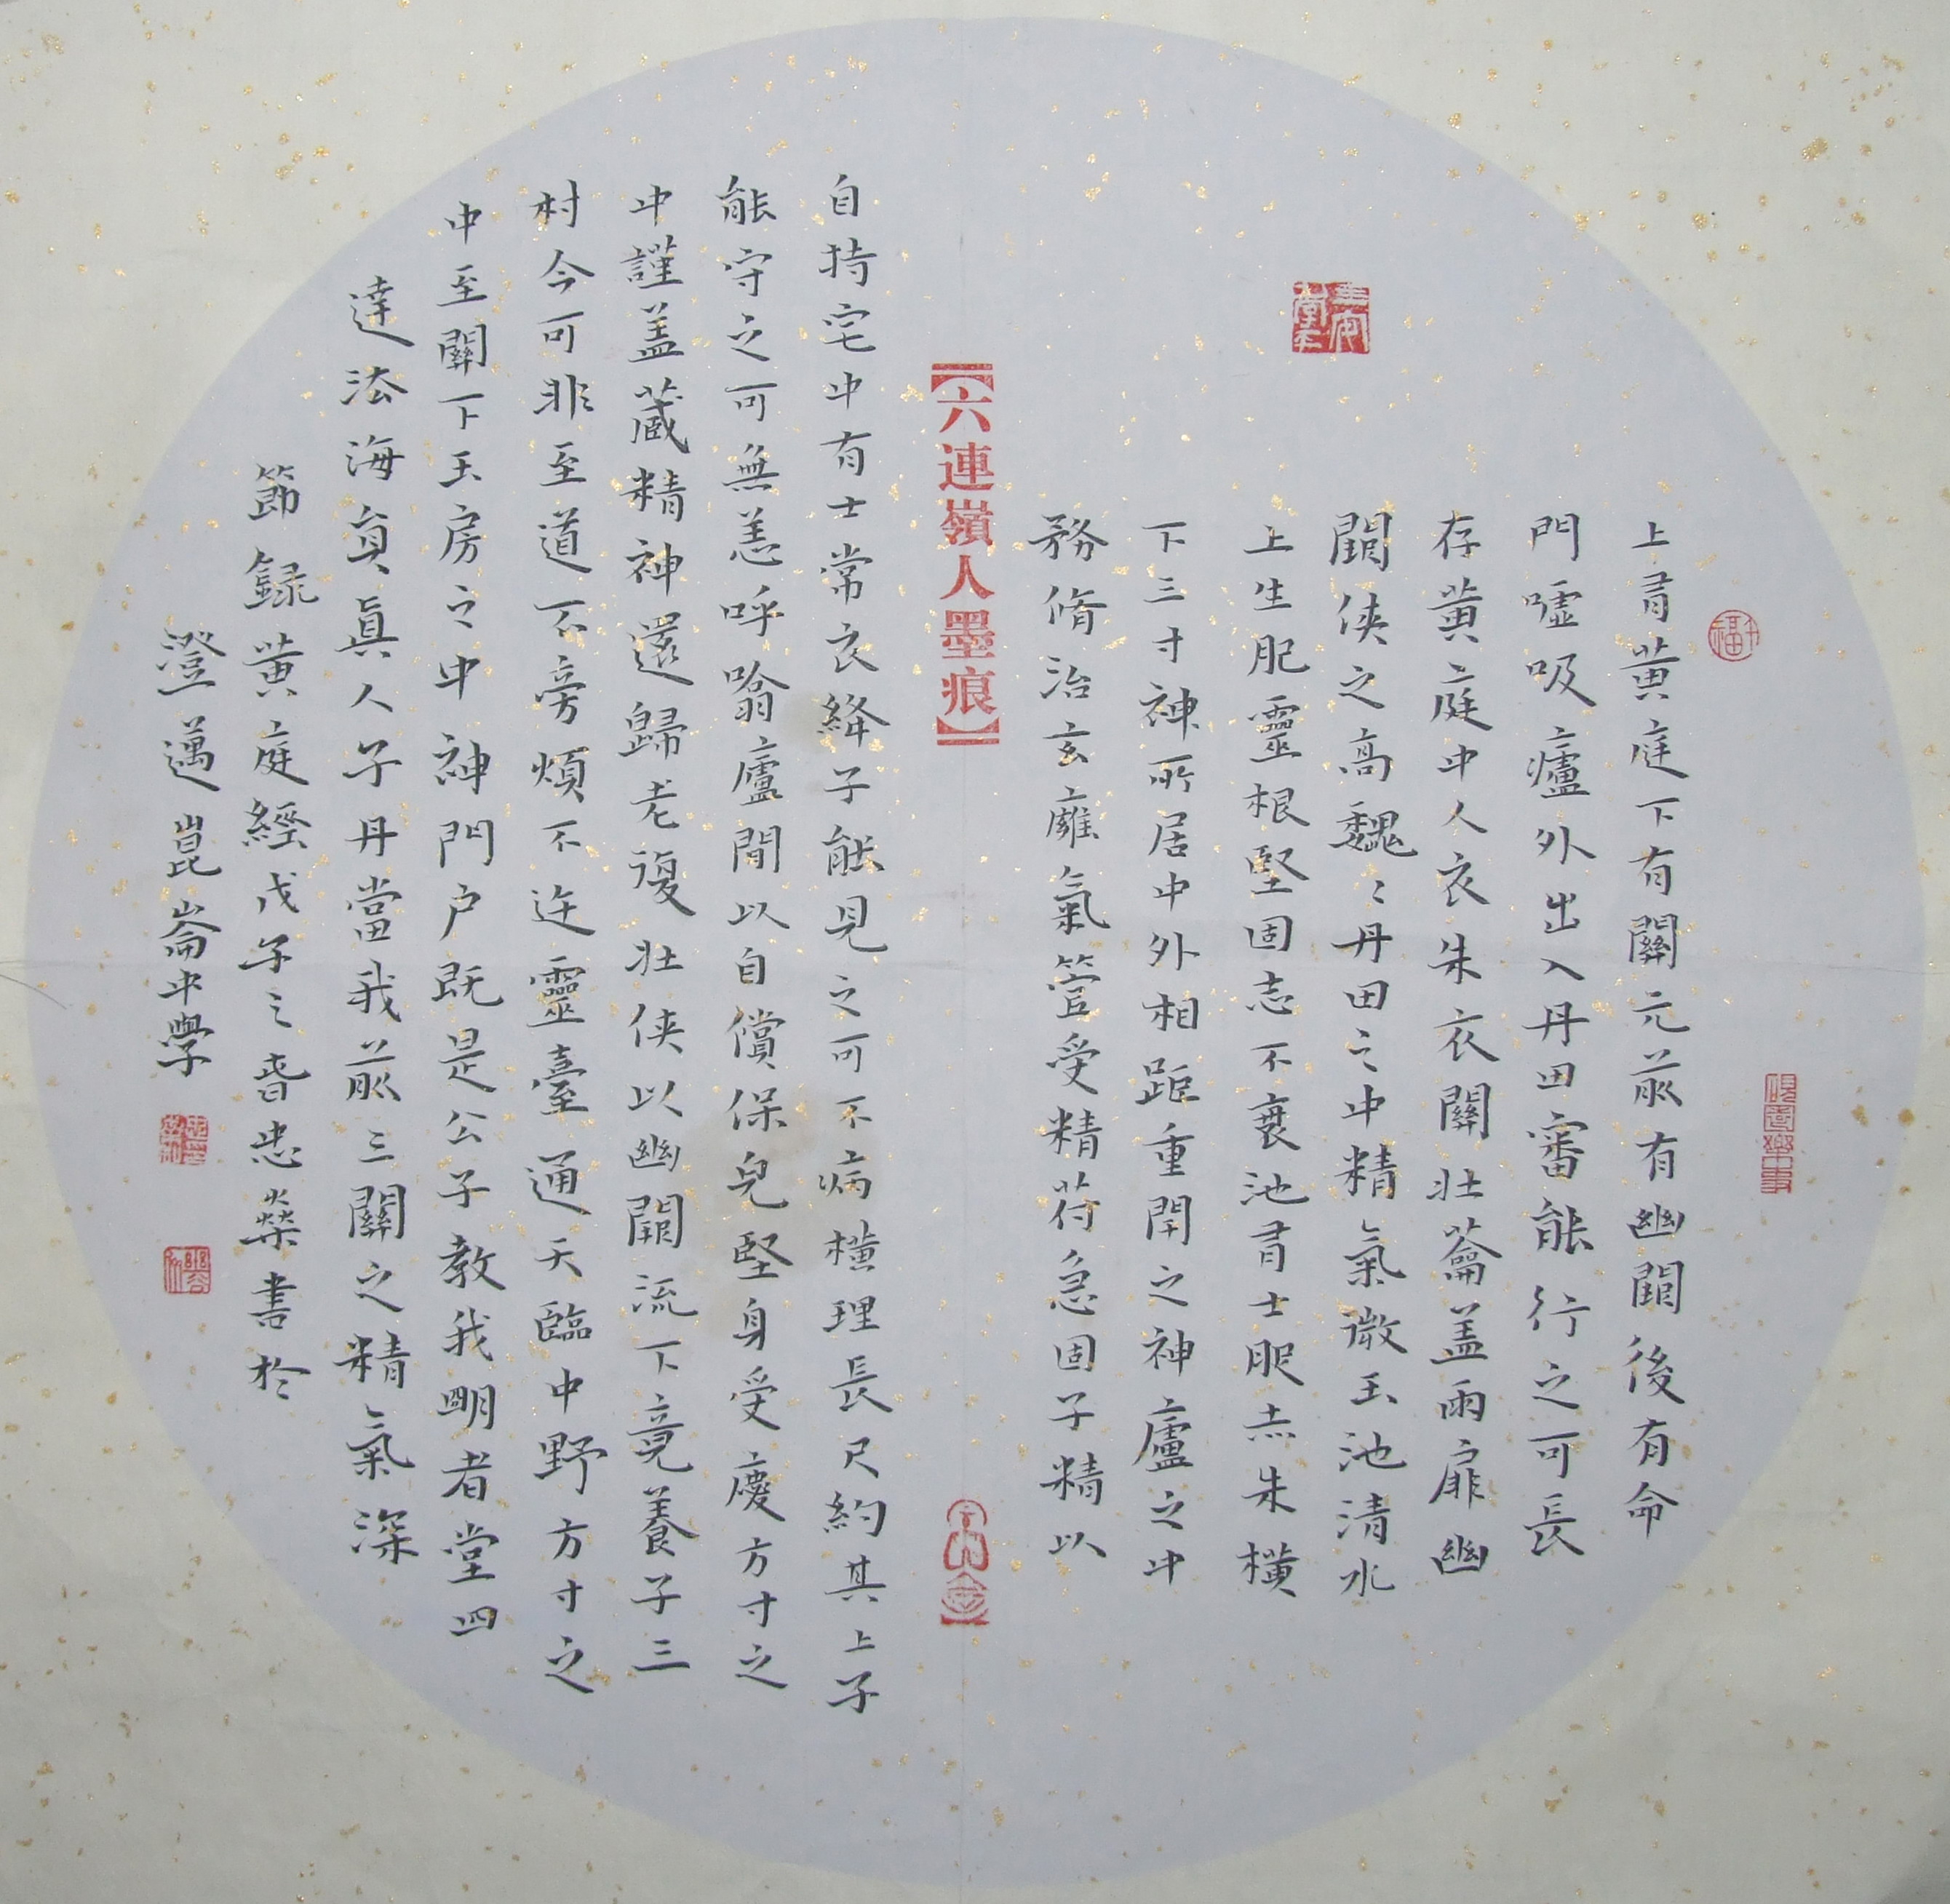 上有黄庭下有關元前有幽闕後有命
門噓吸廬外出入丹田審能行之可長
存黄庭中人衣朱衣關壯蘥盖兩扉幽
闕俠之高魏〻丹田之中精氣微玉池清水
上生肥靈根堅固志不衰池有士服赤朱橫
下三寸神所居中外相距重閉之神廬之中
務脩治玄廱氣管受精符急固子精以
【六連嶺人墨痕】
自持宅中有士常衣絳子能見之可不病橫理長尺約其上子
能守之可無恙呼噏廬間以自償保皃堅身受慶方寸之
中謹盖藏精神還歸老復壯俠以幽闕流下竟養子三
村今可非至道不旁煩不迕靈臺通天臨中野方寸之
中至關下玉房之中神門户既是公子教我明者堂四
達法海貟眞人子丹當我前三關之精氣深
節録黄庭經戊子之春忠燊書於
澄邁崑崙中學